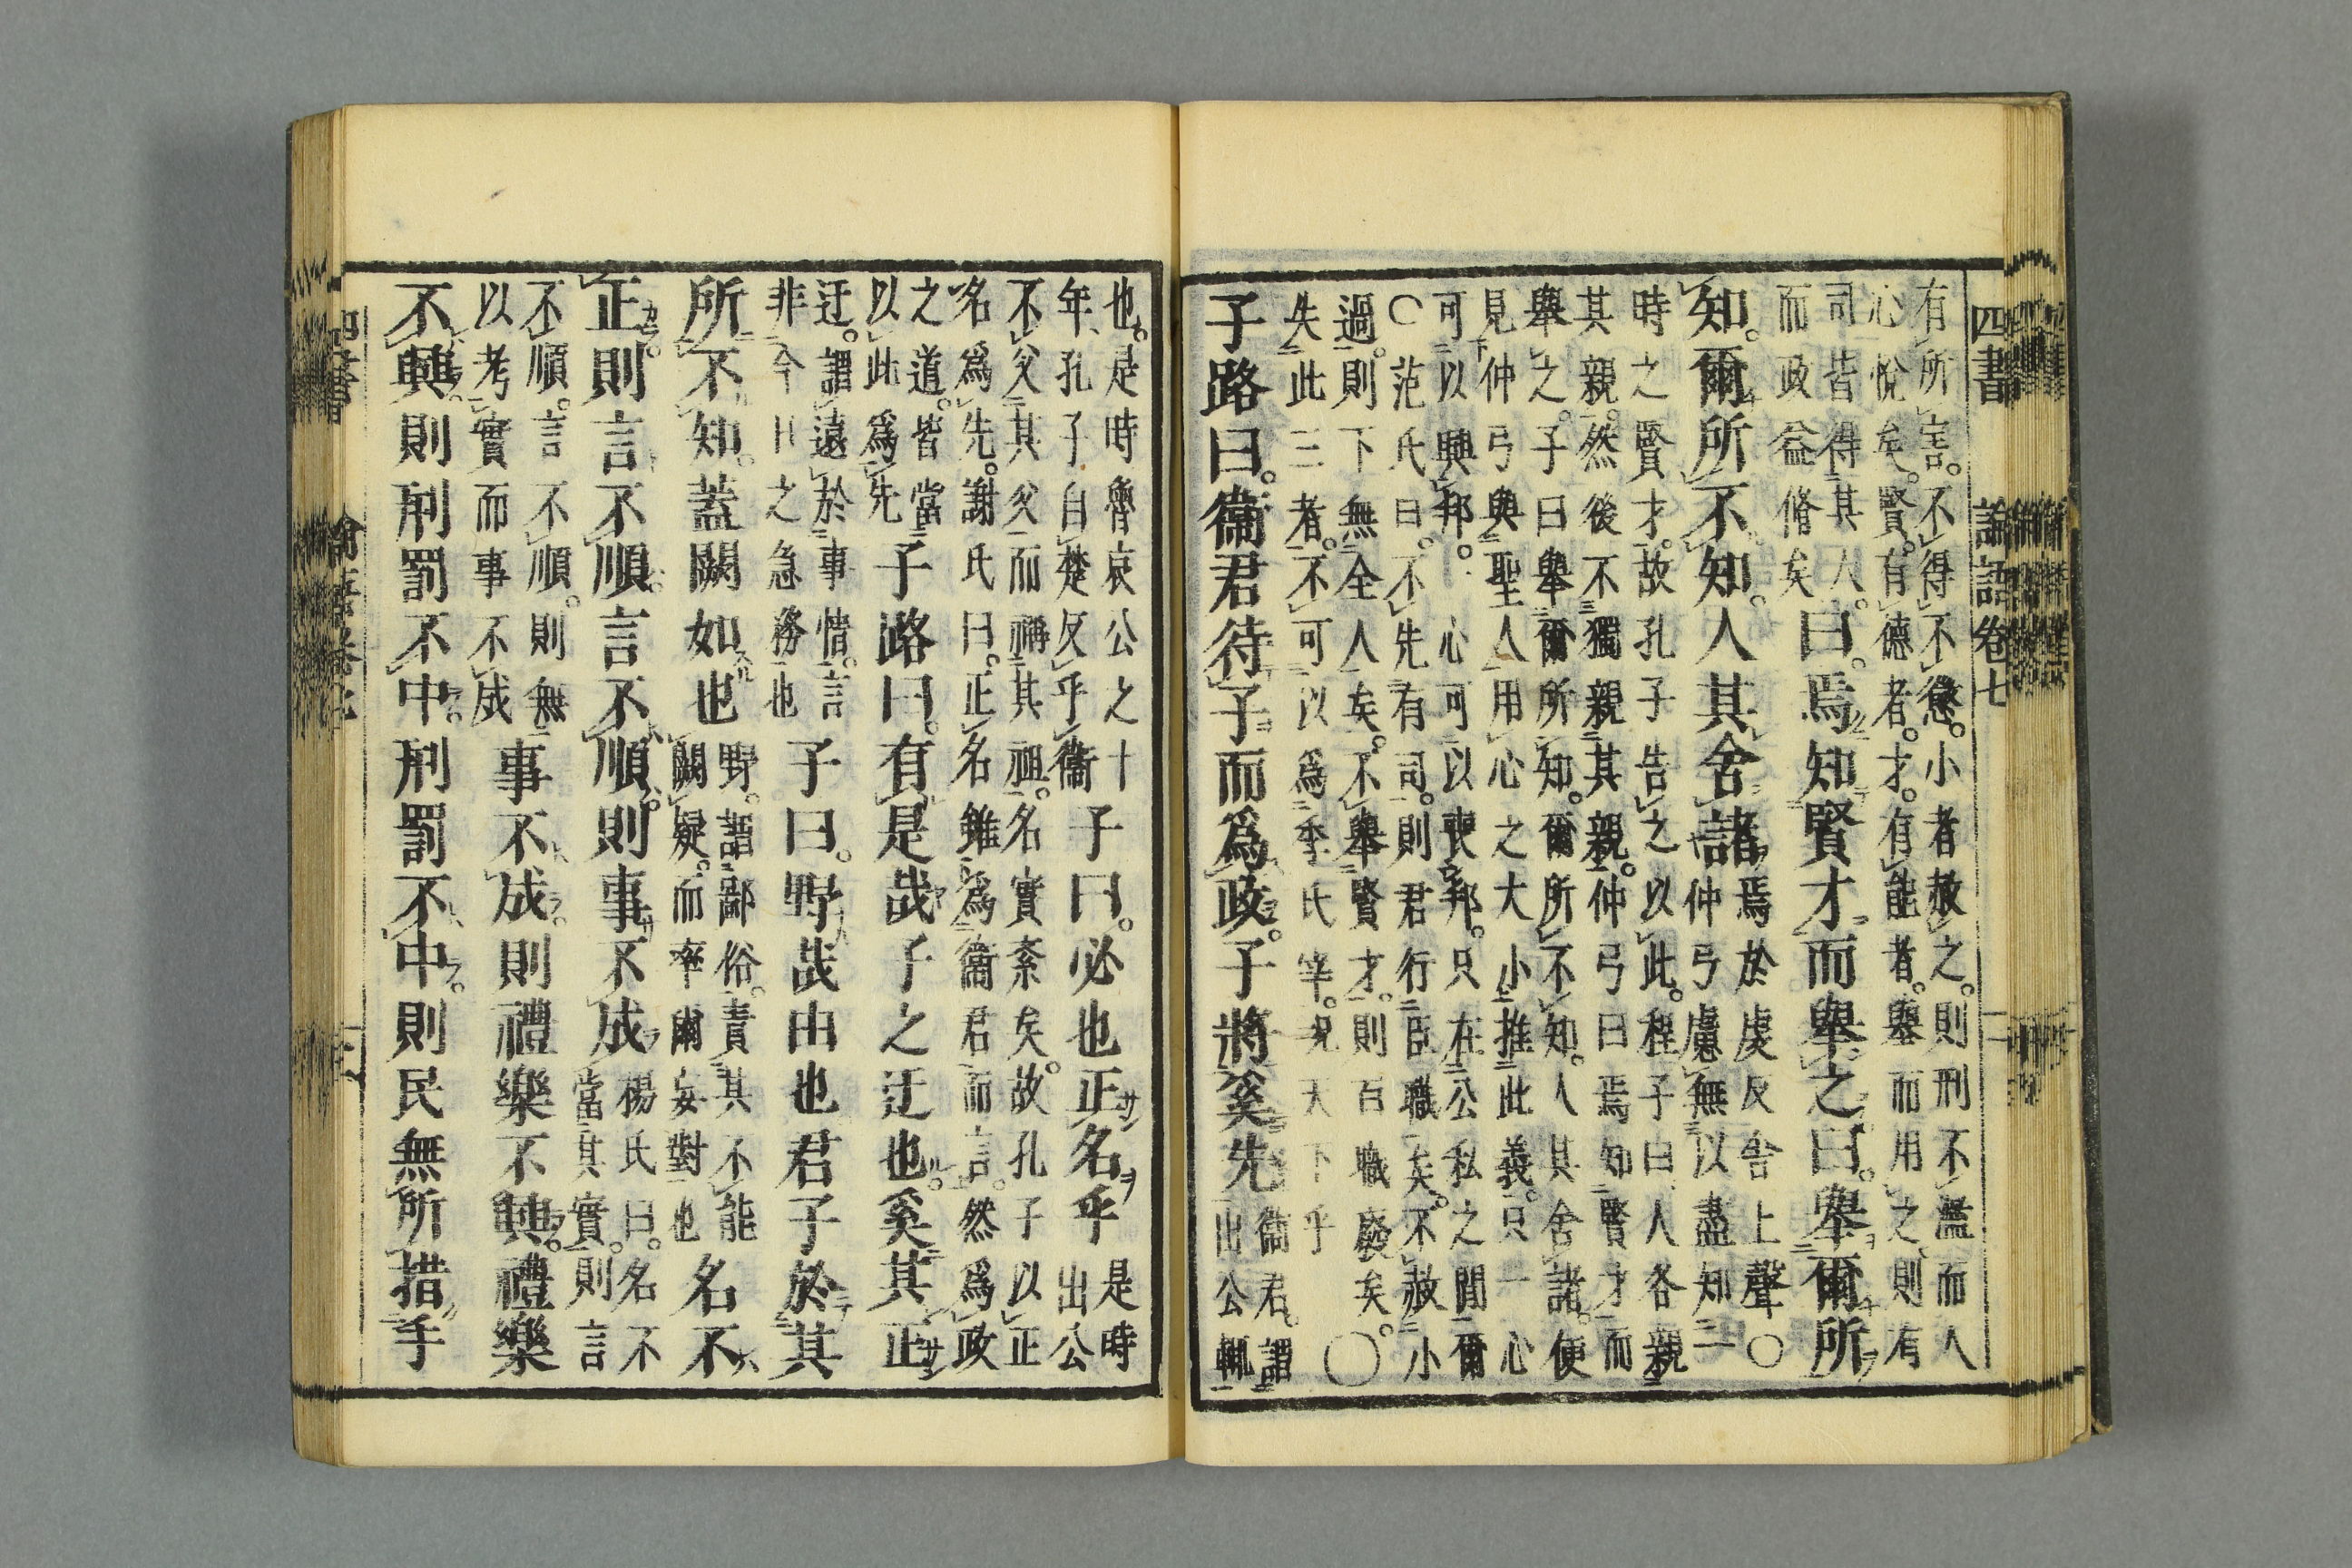 四書　論語卷七　二
有所害。不得不懲。小者赦之。則刑不濫而人
心悅矣。賢。有德者。才。有能者。舉而用之。則有
司皆得其人。
而政益脩矣
曰。焉知賢才而舉之。曰。舉爾所
知。爾所不知。人其舍諸
焉於虔反舍上聲〇
仲弓慮無以盡知一
時之賢才。故孔子告之以此。程子曰人各親
其親。然後不獨親其親。仲弓曰焉知賢才而
舉之。子曰舉爾所知。爾所不知。人其舍諸。便
見仲弓與聖人用心之大小推此義。只一心
可以興邦。心可以喪邦。只在公私之間爾
〇范氏曰。不先有司。則君行臣職矣。不赦小
過。則下無全人矣。不舉賢才。則百職廢矣。〇
失此三者。不可以爲季氏宰。況天下乎
子路曰。衞君待子而爲政。子將奚先
衞君。謂
出公輒
也。是時魯哀公之十
年、孔子自楚反乎衞
子曰。必也正名乎
是時
出公
不父其父而禰其祖。名實紊矣。故孔子以正
名爲先。謝氏曰。正名雖爲衞君而言。然爲政
之道。皆當
以此爲先
子路曰。有是哉子之迂也。奚其正
迂。謂遠於事情。言
非今日之急務也
子曰。野哉由也君子於其
所不知。蓋闕如也
野。謂鄙俗。責其不能
闕疑。而率爾妄對也
名不
正。則言不順。言不順。則事不成
楊氏曰。名不
當其實。則言
不順。言不順。則無
以考實而事不成
事不成。則禮樂不興。禮樂
不興。則刑罰不中。刑罰不中。則民無所措手
四書　論語卷七